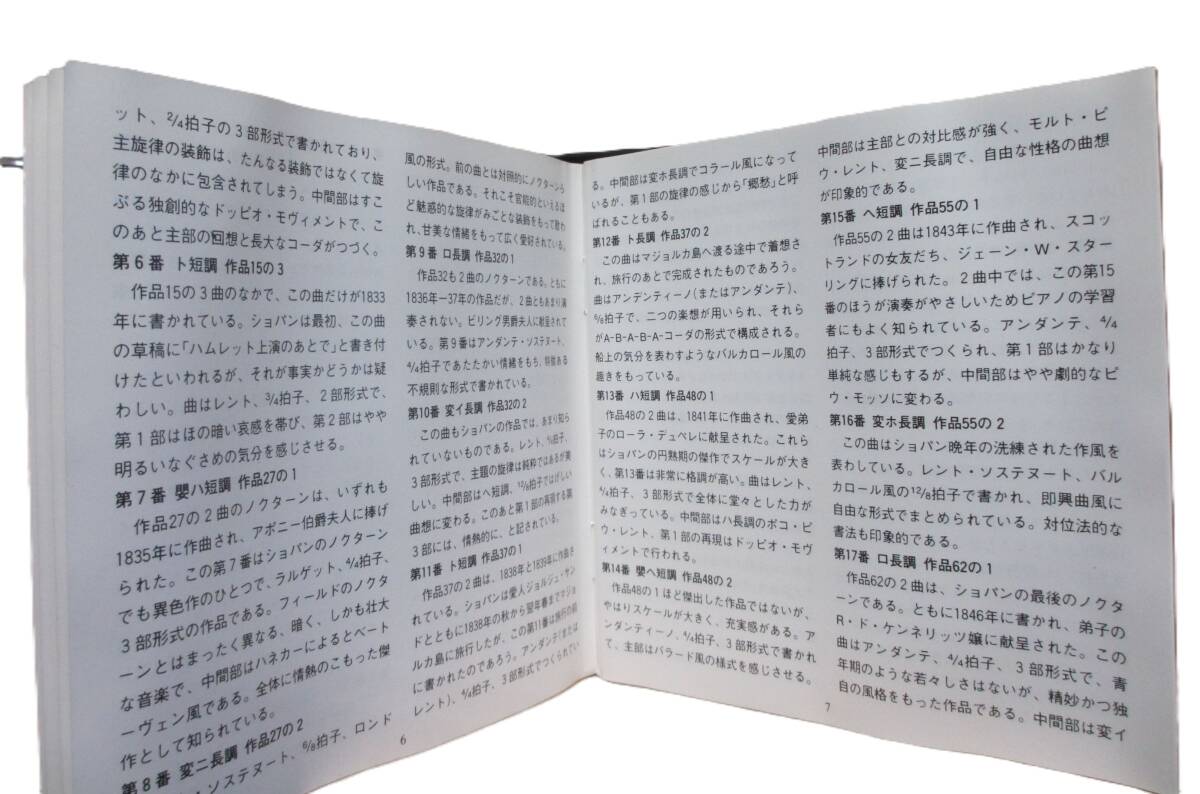 ット、2/4拍子の3部形式で書かれており、
主旋律の装飾は、たんなる装飾ではなくて旋
律のなかに包含されてしまう。中間部はすこ
ぶる独創的なドッピオ・モヴィメントで、こ
のあと主部の回想と長大なコーダがつづく。
第6番 ト短調 作品15の3
作品15の3曲のなかで、この曲だけが1833
年に書かれている。ショパンは最初、この曲
の草稿に「ハムレット上演のあとで」と書き付
けたといわれるが、それが事実かどうかは疑
わしい。曲はレント、3/4拍子、2部形式で、
第1部はほの暗い哀感を帯び、第2部はやや
明るいなぐさめの気分を感じさせる。
第7番 嬰ハ短調 作品27の1
作品27の2曲のノクターンは、いずれも
1835年に作曲され、アポニー伯爵夫人に捧げ
られた。この第7番はショパンのノクターン
でも異色作のひとつで、ラルゲット、4/4拍子、
3部形式の作品である。フィールドのノクタ
ーンとはまったく異なる、暗く、しかも壮大
な音楽で、中間部はハネカーによるとベート
ーヴェン風である。全体に情熱のこもった傑
作として知られている。
第8番 変ニ長調 作品27の2
・ソステヌート、6/8拍子、ロンド
風の形式。前の曲とは対照的にノクターンら
しい作品である。それこそ官能的といえるほ
ど魅惑的な旋律がみごとな装飾をもって歌わ
れ、甘美な情緒をもって広く愛好されている。
第9番 ロ長調 作品32の1
作品32も2曲のノクターンである。ともに
1836年―37年の作品だが、2曲ともあまり演
奏されない。ビリング男爵夫人に献呈されて
いる。第9番はアンダンテ・ソステヌート、
4/4拍子であたたかい情緒をもち、特徴ある
不規則な形式で書かれている。
第10番 変イ長調 作品32の2
この曲もショパンの作品では、あまり知ら
れていないものである。レント、4/4拍子、
3部形式で、主題の旋律は純粋ではあるが美
しい。中間部はヘ短調、12/8拍子ではげしい
曲想に変わる。このあと第1部の再現する第
3部には、情熱的に、と記されている。
第11番 ト短調 作品37の1
作品37の2曲は、1838年と1839年に作曲さ
れている。ショパンは愛人ジョルジュ・サン
ドとともに1838年の秋から翌年春までマジョ
ルカ島に旅行したが、この第11番は旅行の前
に書かれたのであろう。アンダンテ(または
レント)、4/4拍子、3部形式でつくられてい
6
る。中間部は変ホ長調でコラール風になって
いるが、第1部の旋律の感じから「郷愁」と呼
ばれることもある。
第12番 ト長調 作品37の2
この曲はマジョルカ島へ渡る途中で着想さ
れ、旅行のあとで完成されたものであろう。
曲はアンデンティーノ(またはアンダンテ)、
6/8拍子で、二つの楽想が用いられ、それら
がA-B-A-B-A-コーダの形式で構成される。
船上の気分を表わすようなバルカロール風の
趣きをもっている。
第13番 ハ短調 作品48の1
作品48の2曲は、1841年に作曲され、愛弟
子のローラ・デュペレに献呈された。これら
はショパンの円熟期の傑作でスケールが大き
く、第13番は非常に格調が高い。曲はレント、
4/4拍子、3部形式で全体に堂々とした力が
みなぎっている。中間部はハ長調のポコ・ピ
ウ・レント、第1部の再現はドッピオ・モヴ
ィメントで行われる。
第14番 嬰ヘ短調 作品48の2
作品48の1ほど傑出した作品ではないが、
やはりスケールが大きく、充実感がある。ア
ンダンティーノ、4/4拍子、3部形式で書かれ
て、主部はバラード風の様式を感じさせる。
中間部は主部との対比感が強く、モルト・ピ
ウ・レント、変ニ長調で、自由な性格の曲想
が印象的である。
第15番 ヘ短調 作品55の1
作品55の2曲は1843年に作曲され、スコッ
トランドの女友だち、ジェーン・W・スター
リングに捧げられた。2曲中では、この第15
番のほうが演奏がやさしいためピアノの学習
者にもよく知られている。アンダンテ、4/4
拍子、3部形式でつくられ、第1部はかなり
単純な感じもするが、中間部はやや劇的なピ
ウ・モッソに変わる。
第16番 変ホ長調 作品55の2
この曲はショパン晩年の洗練された作風を
表わしている。レント・ソステヌート、バル
カロール風の12/8拍子で書かれ、即興曲風に
自由な形式でまとめられている。対位法的な
書法も印象的である。
第17番 ロ長調 作品62の1
作品62の2曲は、ショパンの最後のノクタ
ーンである。ともに1846年に書かれ、弟子の
R・ド・ケンネリッツ嬢に献呈された。この
曲はアンダンテ、4/4拍子、3部形式で、青
年期のような若々しさはないが、精妙かつ独
自の風格をもった作品である。中間部は変イ
7